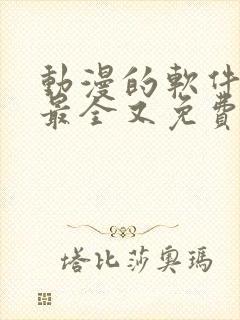 動漫的軟件
最全又免費
塔比莎奧瑪